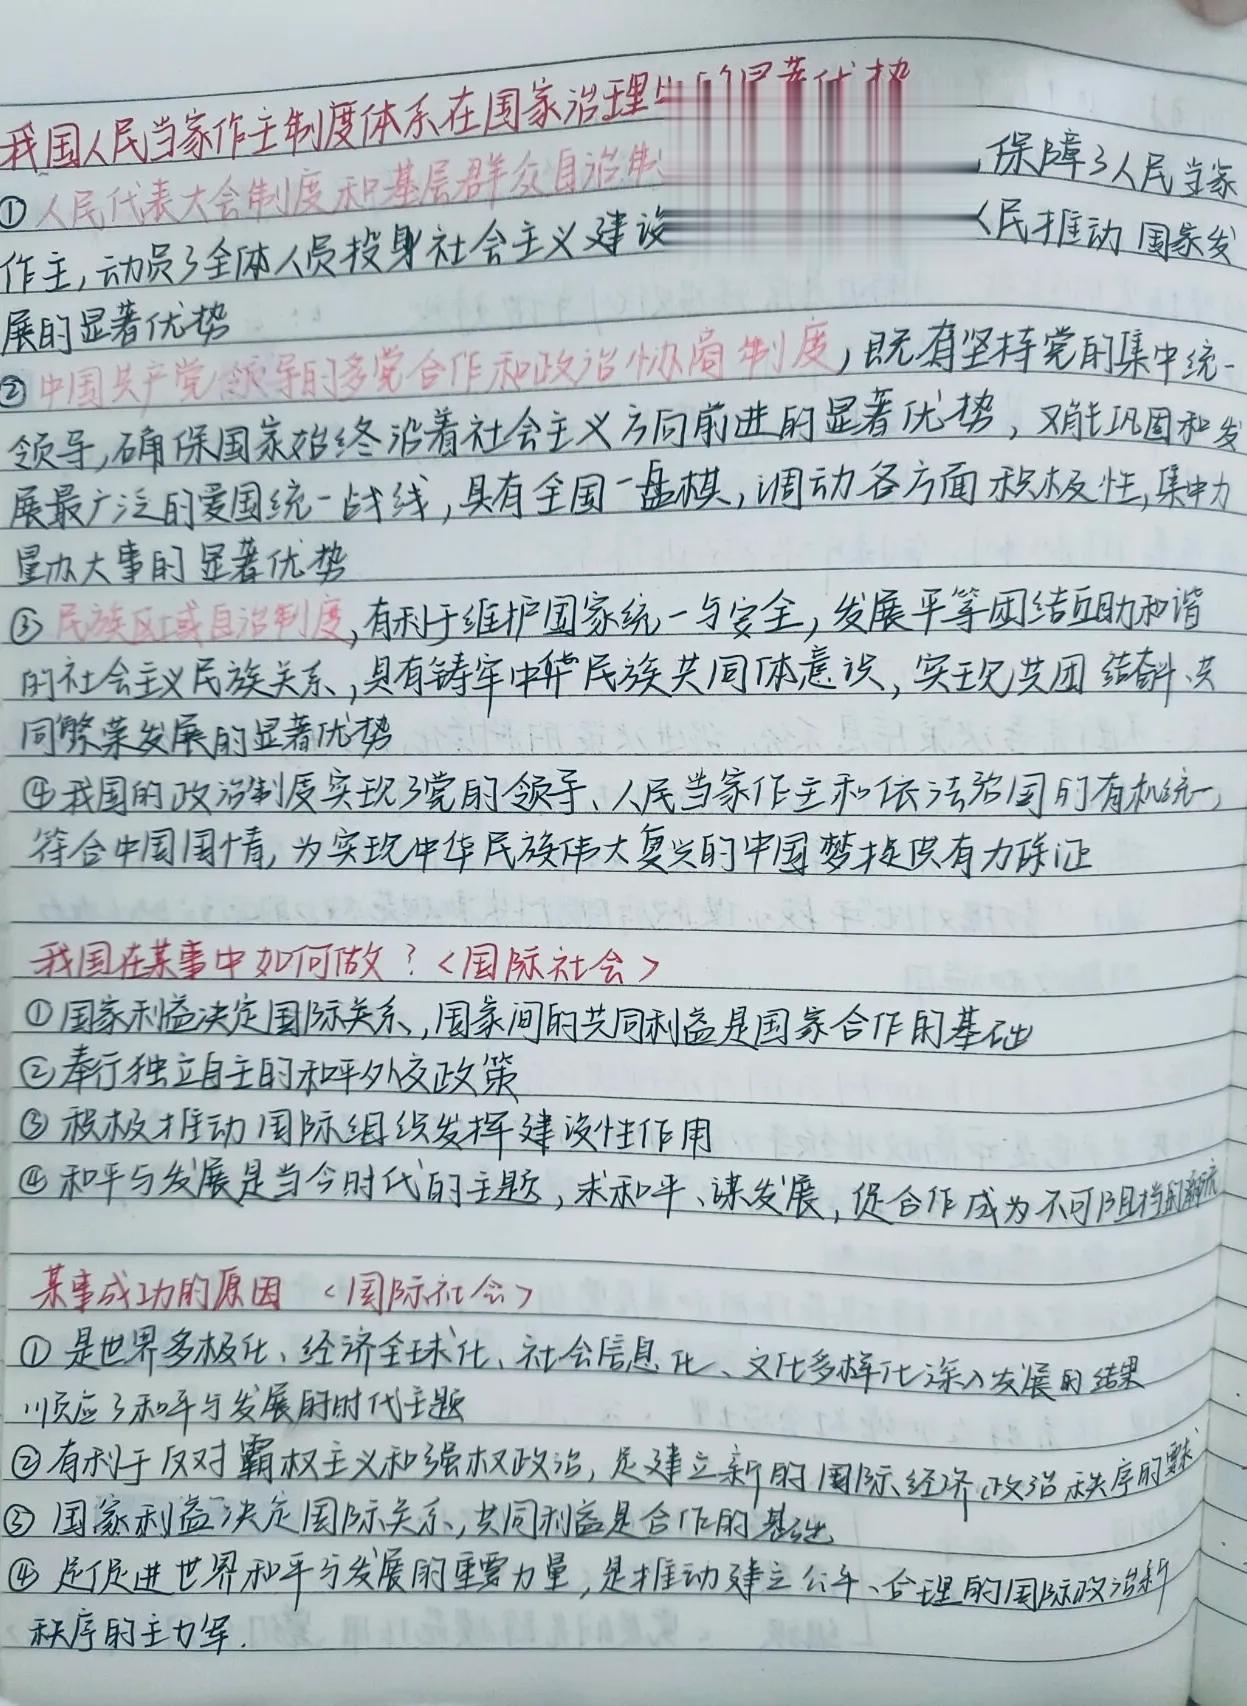 我国人民当家作主制度体系在国家治理
①人民代表大会制度和基层群众自治制 保障了人民当家
作主,动员了全体人员投身社会主义建设 民推动国家发
展的显著优势
②中国共产党领导的多党合作和政治协商制度,既有坚持党的集中统一
领导,确保国家始终沿着社会主义方向前进的显著优势,又能巩固和发
展最广泛的爱国统一战线,具有全国一盘棋,调动各方面积极性,集中力
量办大事的显著优势
③民族区域自治制度,有利于维护国家统一与安全,发展平等团结互助和谐
的社会主义民族关系,具有铸牢中华民族共同体意识,实现共团结奋斗、共
同繁荣发展的显著优势
④我国的政治制度实现了党的领导、人民当家作主和依法治国的有机统一,
符合中国国情,为实现中华民族伟大复兴的中国梦提供有力保证
我国在某事中如何做?<国际社会>
①国家利益决定国际关系,国家间的共同利益是国家合作的基础
②奉行独立自主的和平外交政策
③积极推动国际组织发挥建设性作用
④和平与发展是当今时代的主题,求和平、谋发展,促合作成为不可阻挡的潮流
某事成功的原因<国际社会>
①是世界多极化、经济全球化、社会信息化、文化多样化深入发展的结果
顺应了和平与发展的时代主题
②有利于反对霸权主义和强权政治,是建立新的国际经济政治秩序的要求
③国家利益决定国际关系,共同利益是合作的基础
④是促进世界和平与发展的重要力量,是推动建立公平、合理的国际政治新
秩序的主力军.